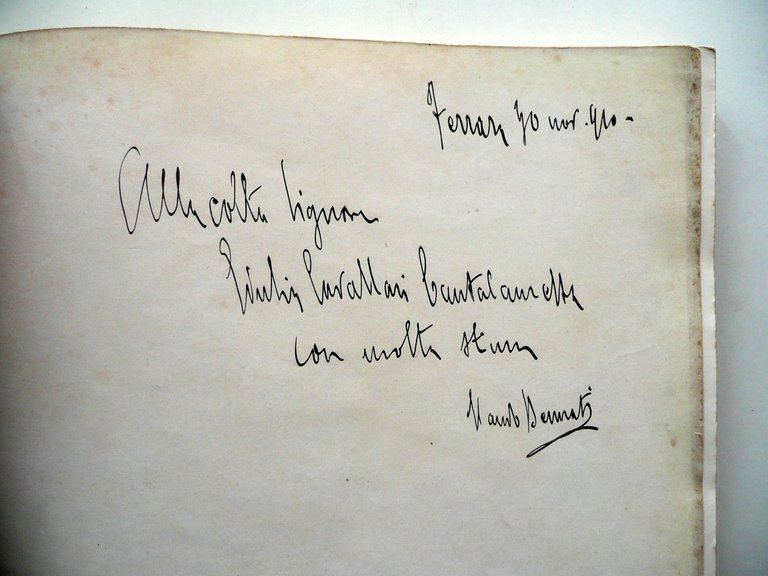 Ferrara 30 nov. 910 -
Alla colta Signora
Giulia Cavallari Cantalamessa
con molta stima
Nando Bennati